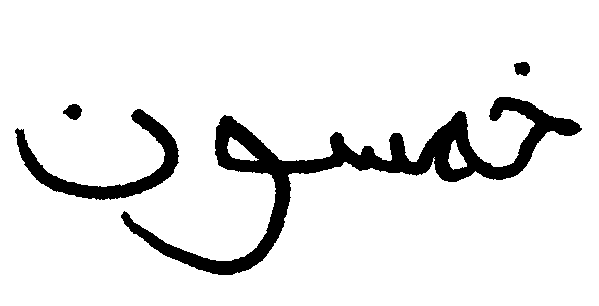 خمسون